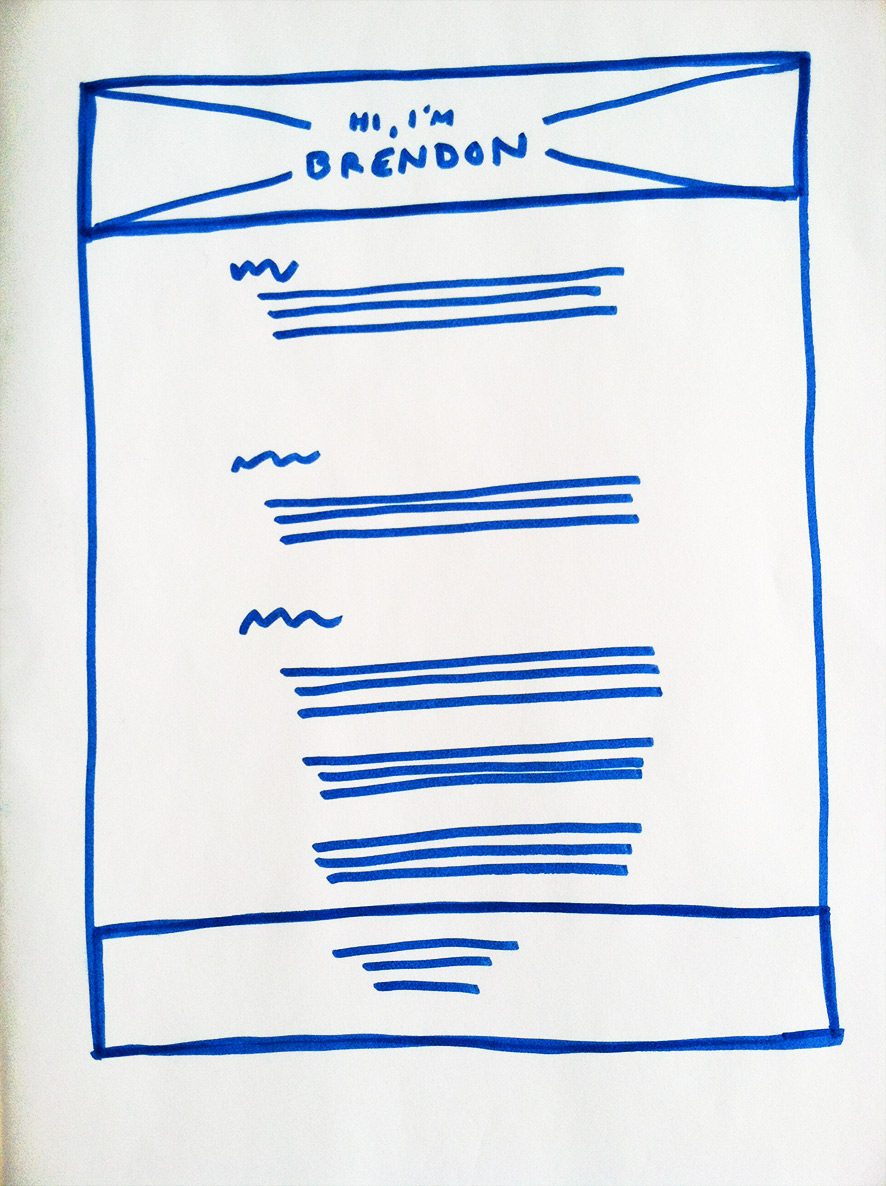 HI, I'M
BRENDON